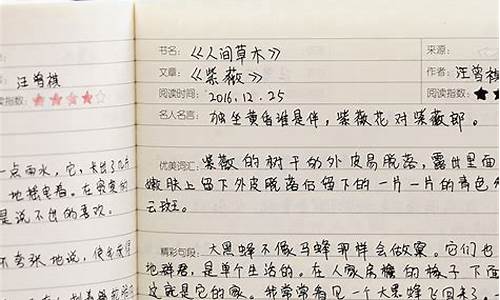 汪曾祺
阅读指数:
一点雨水,它,
地摇曳着。在密集的
是说不出的喜欢。
不夸张地说,
书名:《人间草木》
来源:
文章:《紫薇》
作者:汪曾祺
阅读时间: 2016.12.25
阅读指数:
名人名言: 独坐黄昏谁是伴,紫薇花对紫薇郎。
优美词汇: 紫薇的树干的外皮易脱落,露出里面
嫩肤上留下外皮脱落后留下的一片一片的青色
云斑。
精彩句段: 大黑蜂不像马蜂那样会做窠。它们也
地群居,是单个生活的。在人家房檐的椽子下面
这就是它的家。我常常看见一个大黑蜂飞回来了